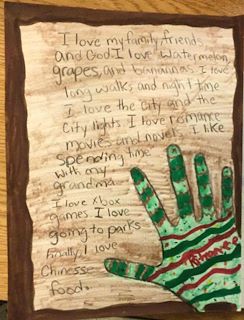 I love my family, friends,
and God. I love watermelon,
grapes, and bananas. I love
long walks and night time
I love the city and the
City lights. I love romance
movies and novels. I like
Spending time
with my
grandma.
I love Xbox
games. I love
going to parks
Finally, I love
Chinesse
food.